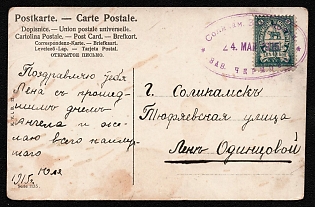 Postkarte. — Carte Postale.
Dopisnice. — Union postale universelle.
Cartolina Postale. — Post Card. — Brefkort.
Correspondenz-Karte. — Briefkaart.
Levelező-Lap. — Tarjeta Postal.
ОТКРЫТОЕ ПИСЬМО.
Поздравляю тебя
Лена с прошед-
шимъ днемъ
Ангела и же-
лаю всего наилуч-
шаго
Юля
1915г.
Serie
г. Соликамскъ
Тюфяевская улица
Лень Одинцовой
4. МАЯ